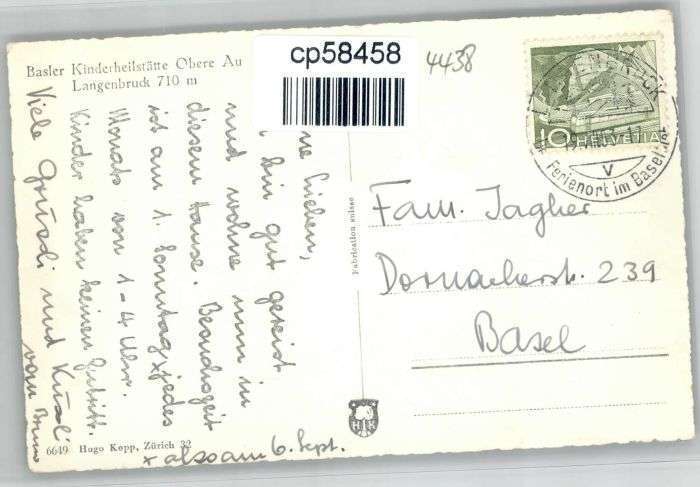 Basler Kinderheilstätte Obere Au
Langenbruck 710 m
cp58458
4438
ne Lieben,
bin gut gereist
und wohne nun in
diesem Hause. Besuchszeit
ist am 1. Sonntag x jedes
Monats von 1-4 Uhr.
Kinder haben keinen Zutritt.
Viele Grüssli und Küssli
von
x also am 6. Sept.
Fabrication suisse
HK
6649 Hugo Kopp, Zürich 32
10 HELVETIA
V
Ferienort im Baselbiet
Fam. Jagher
Dornacherstr. 239
Basel